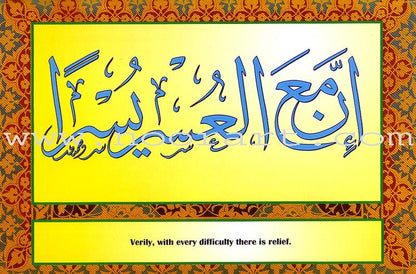 إِنَّ مَعَ الْعُسْرِ يُسْرًا
Verily, with every difficulty there is relief.